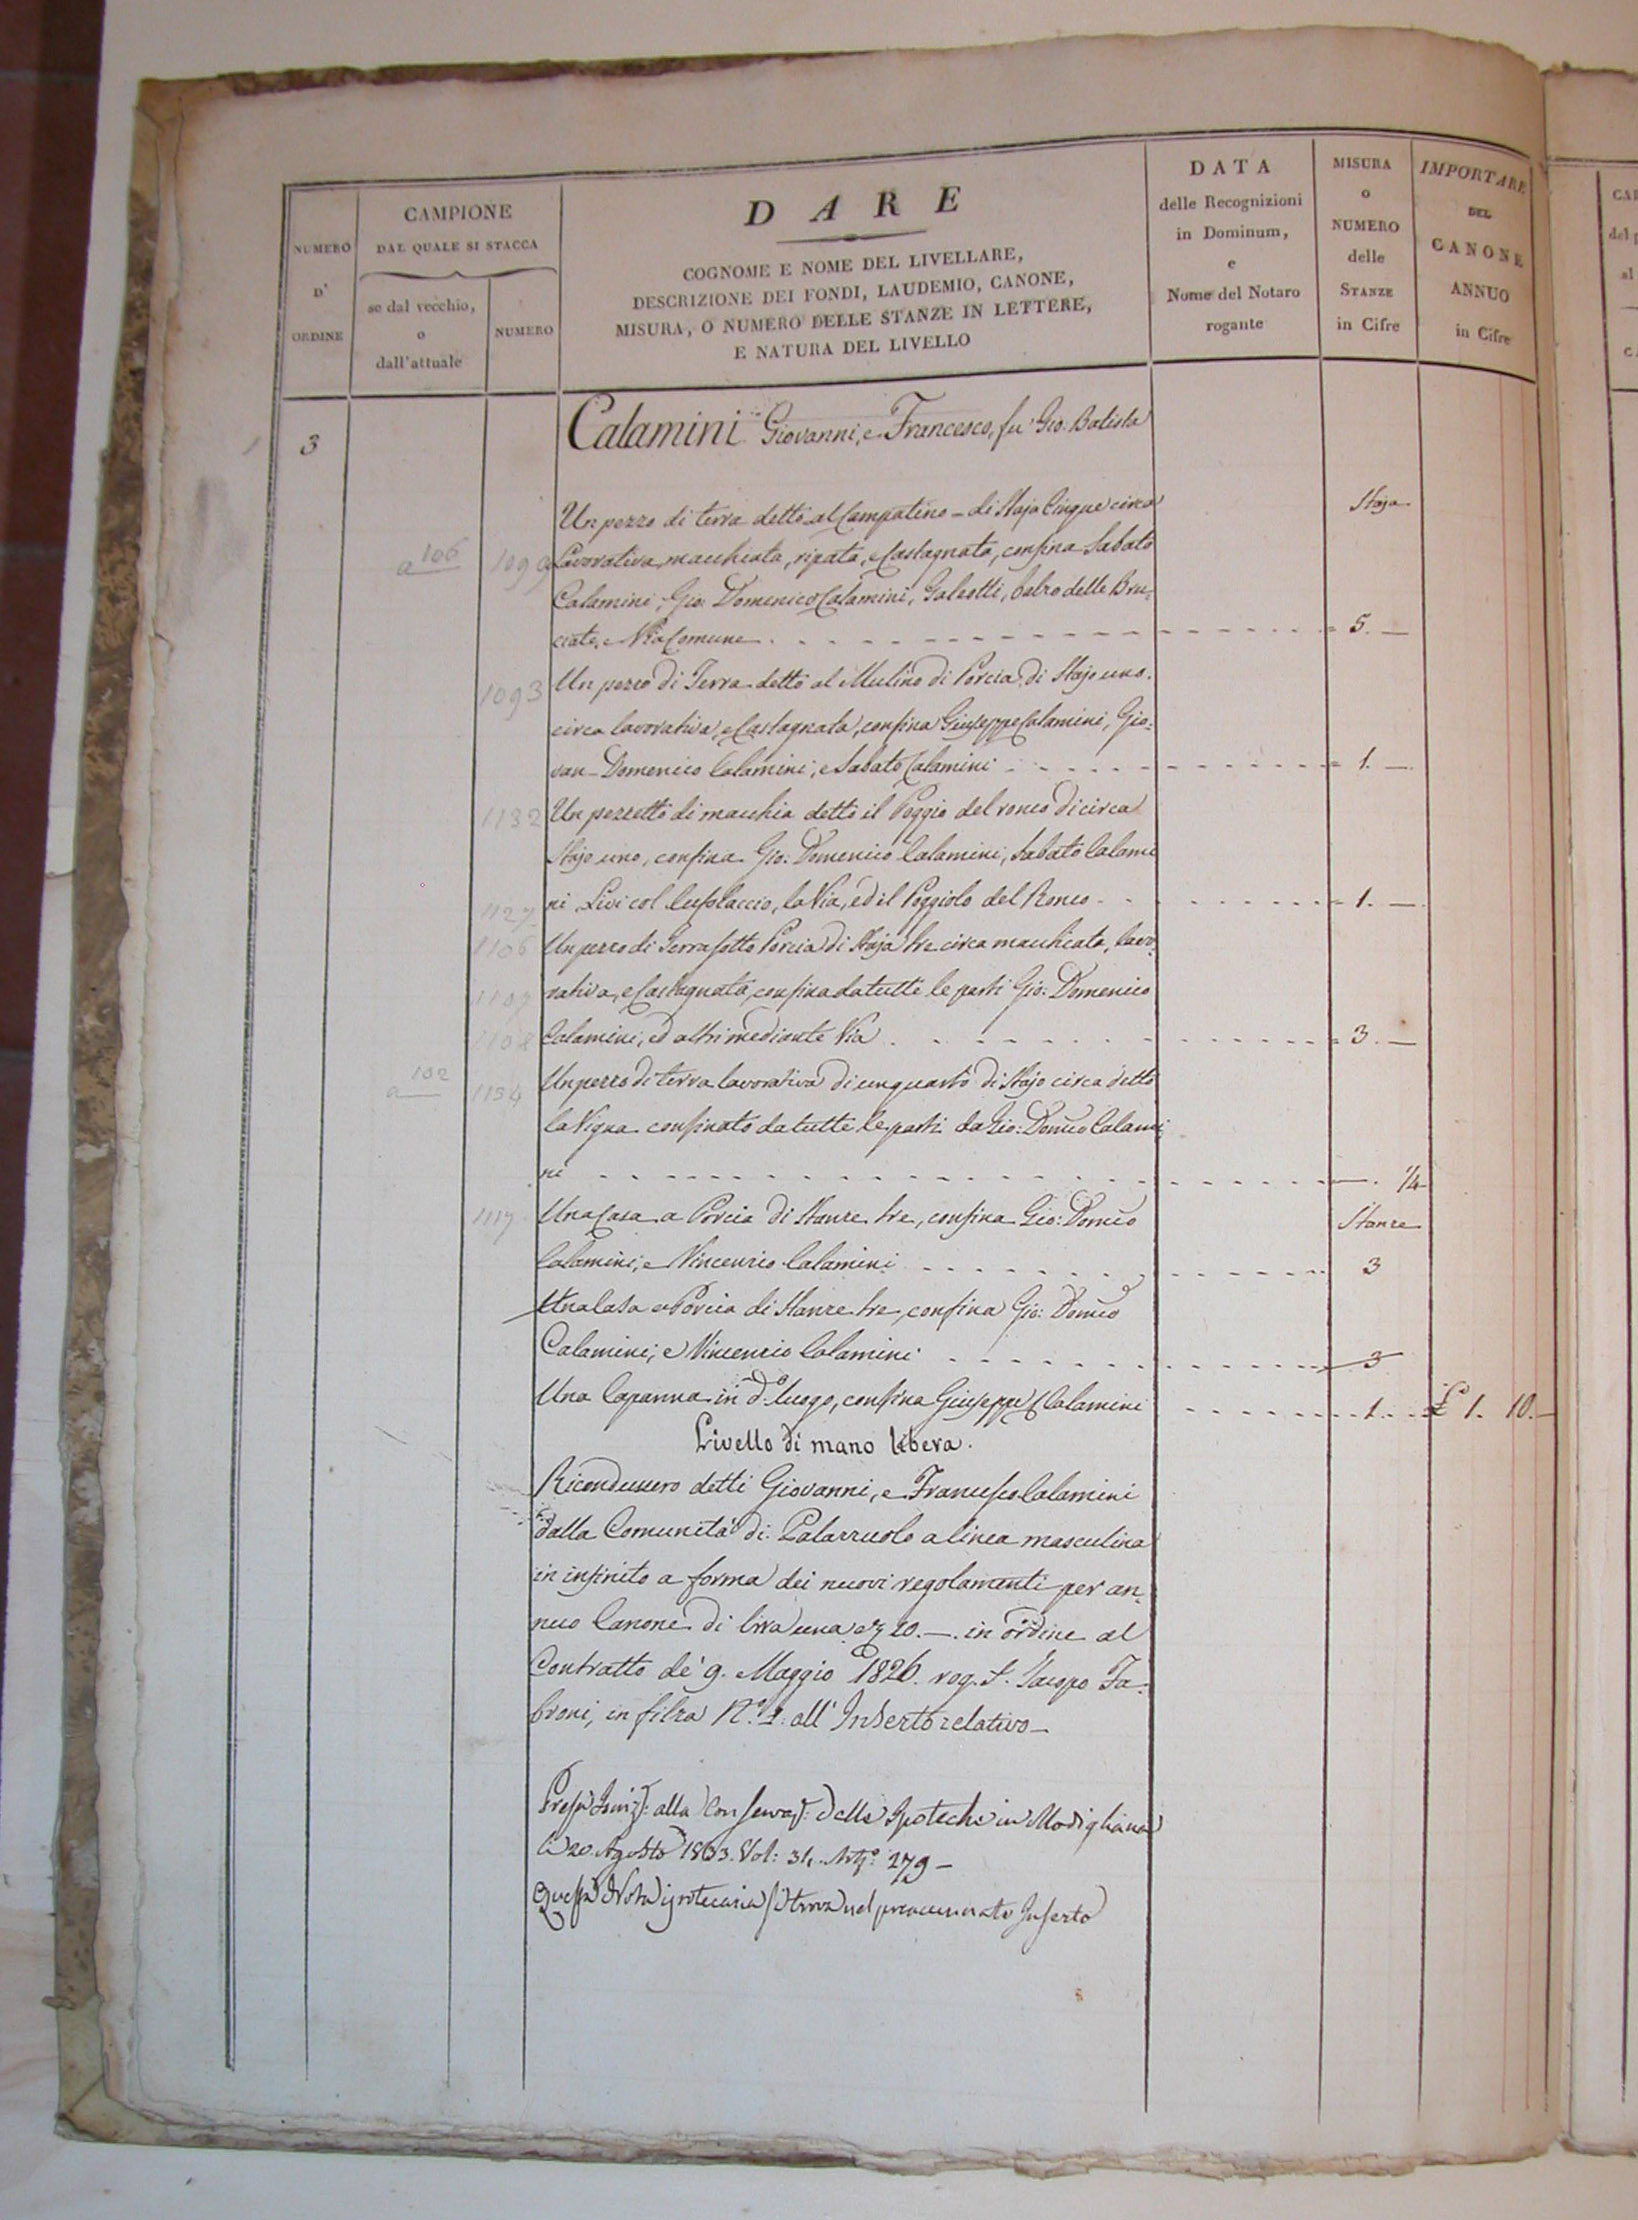 NUMERO
D'
ORDINE
CAMPIONE
DAL QUALE SI STACCA
se dal vecchio,
o
dall'attuale
NUMERO
DARE
COGNOME E NOME DEL LIVELLARE,
DESCRIZIONE DEI FONDI, LAUDEMIO, CANONE,
MISURA, O NUMERO DELLE STANZE IN LETTERE,
E NATURA DEL LIVELLO
DATA
delle Recognizioni
in Dominum,
e
Nome del Notaro
rogante
MISURA
o
NUMERO
delle
STANZE
in Cifre
IMPORTARE
DEL
CANONE
ANNUO
in Cifre
3 Calamini Giovanni, e Francesco, fu Gio. Batista
Un pezzo di terra detto al Campatino - di Staja Cinque circa Staja
a 106 1099 Lavorativa, macchiata, ripata, e Castagnata, confina Sabato
Calamini, Gio: Domenico Calamini, Galeotti, balzo delle Bru-
ciate, e Via Comune 5. —
1093 Un pezzo di Terra detto al Mulino di Porcia di Stajo uno.
circa lavorativa, e Castagnata, confina Giuseppe Calamini, Gio-
van Domenico Calamini, e Sabato Calamini 1. —
1132 Un pezzetto di macchia detto il Poggio del ronco di circa
Stajo uno, confina Gio: Domenico Calamini, Sabato Calami
1127 ni, Livi col la Via, ed il Poggiolo del Ronco 1. —
1106 Un pezzo di Terra sotto Porcia di Staja tre circa macchiata, lavo-
1107 rativa, e Castagnata, confina da tutte le parti Gio: Domenico
1108 Calamini, ed altri mediante Via 3. —
a 102 1154 Un pezzo di terra lavorativa di un quarto di Stajo circa detto
la Vigna confinato da tutte le parti da Gio: Domco Calami
ni —. 1/4
1117 Una Casa a Porcia di Stanze tre, confina Gio: Domco Stanze
Calamini, e Vincenzio Calamini 3
Una Casa a Porcia di Stanze tre, confina Gio: Domco
Calamini, e Vincenzio Calamini 3
Una Capanna in do. luogo, confina Giuseppe Calamini 1. £ 1. 10. —
Livello di mano libera.
Ricondussero detti Giovanni, e Francesco Calamini
dalla Comunità di Palazzuolo a linea masculina
in infinito a forma dei nuovi regolamenti per an-
nuo Canone di lira una e 10. —. in ordine al
Contratto de' 9. Maggio 1826. rog. S. Jacopo Fa-
broni, in filza N.o 1. all' Inserto relativo —
Presa Inscriz: alla Conservaz: delle Ipoteche in Modigliana
li 20. Agosto 1833. Vol: 31. Art.o: 279 —
Questa Nota ipotecaria si trova nel preaccennato Inserto